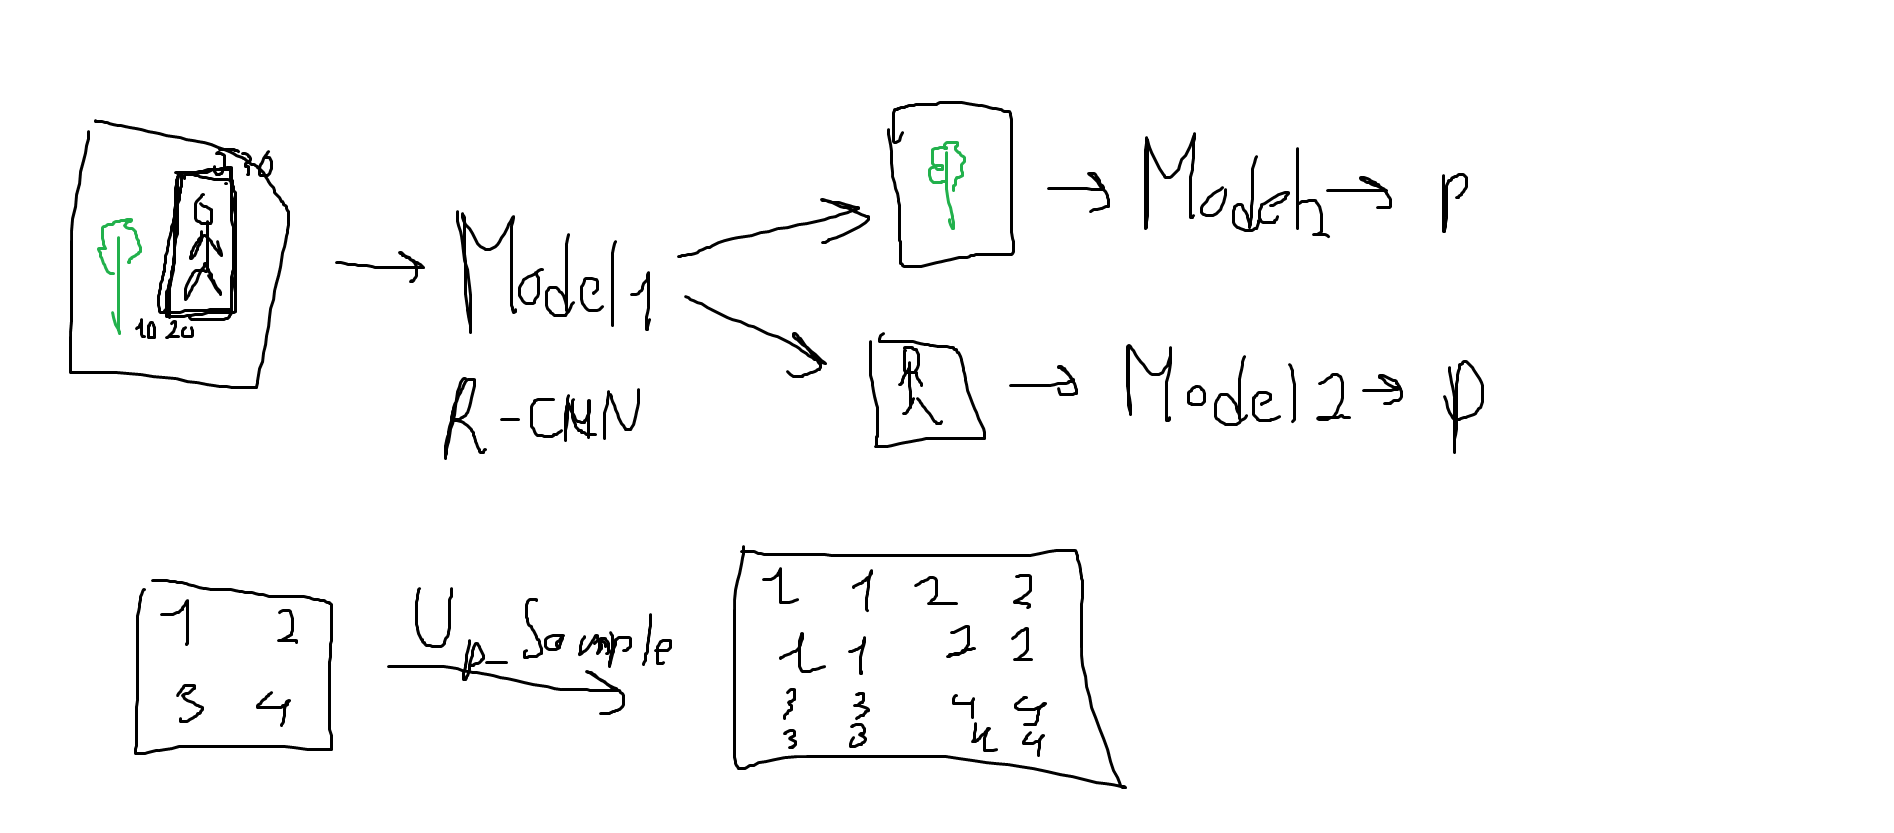 10 20
Model 1
R-CNN
p
Model 2
p
1 2
3 4
Up_Sample
1 1 2 2
1 1 2 2
3 3 4 4
3 3 4 4